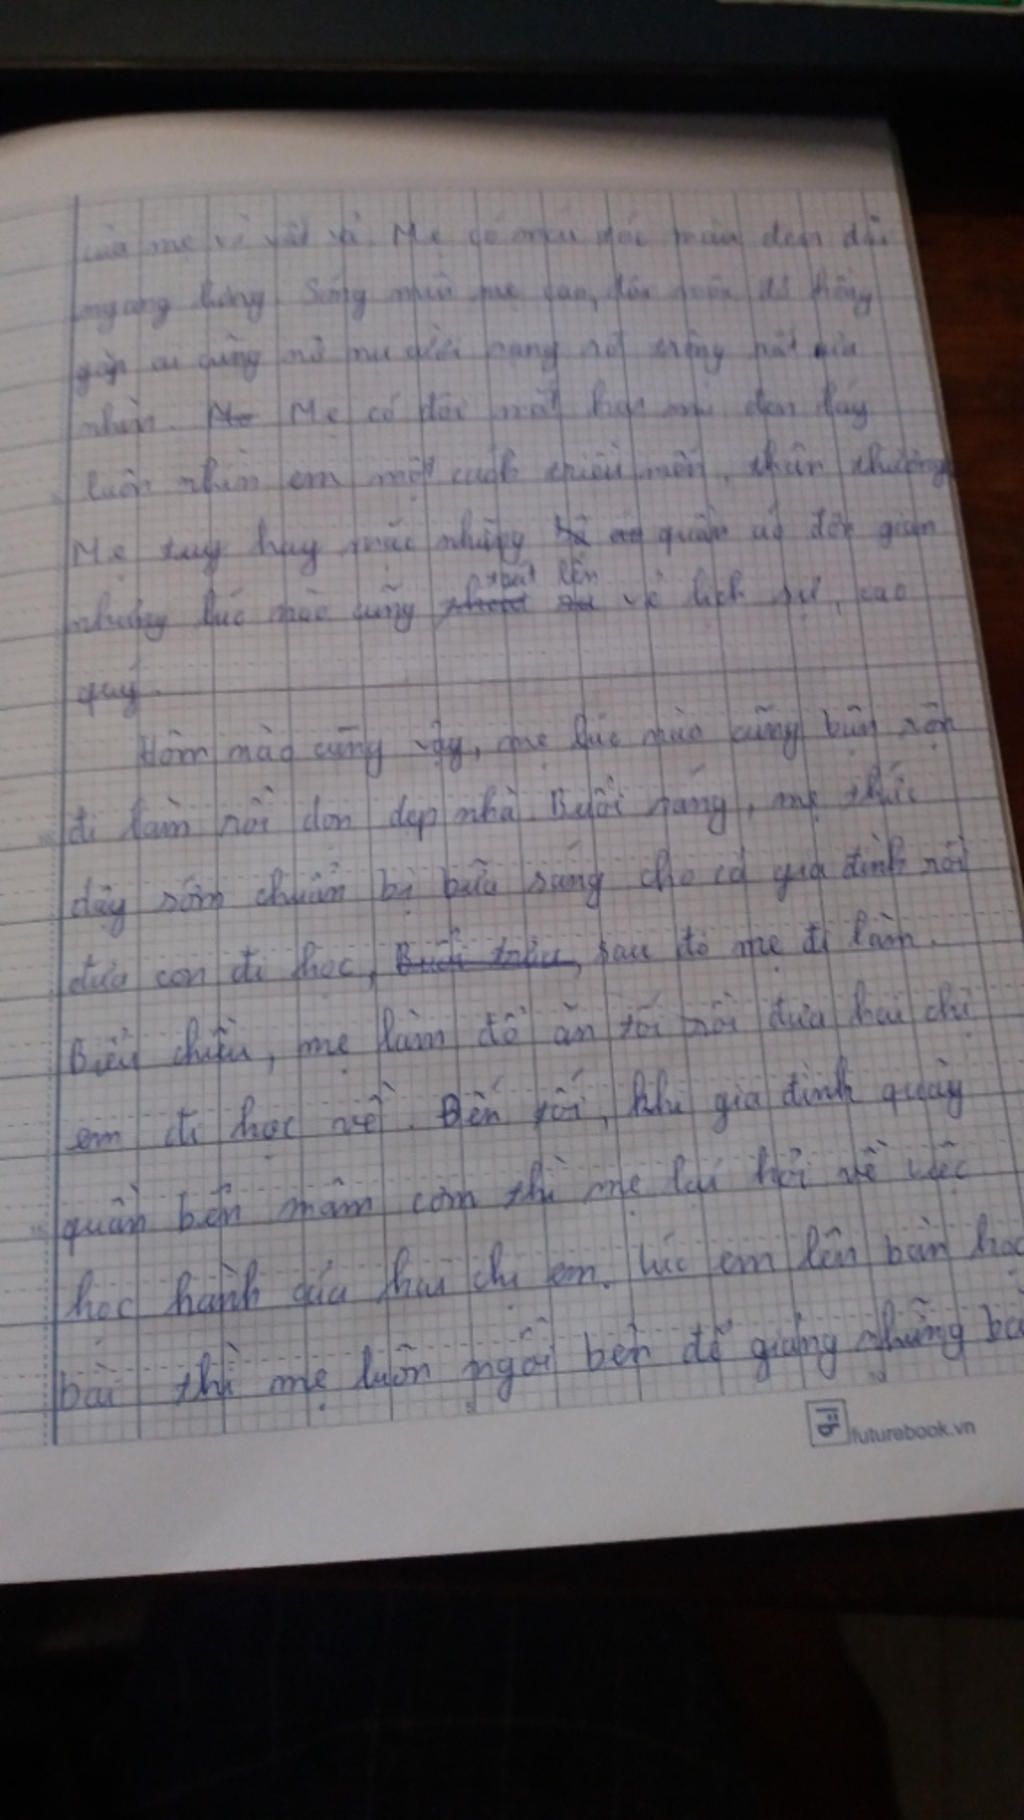 của mẹ vì vất vả. Mẹ có mái tóc màu đen dài
ngang lưng. Sống mũi mẹ cao, đôi môi đỏ hồng
gặp ai cũng nở nụ cười rạng rỡ trông rất
nhìn. Mẹ có đôi mắt đen láy
luôn nhìn em một cách triều mến, thân thương
Mẹ tuy hay mặc những quần áo đơn giản
nhưng lúc nào cũng toát lên vẻ lịch sự, cao
quý.
Hôm nào cũng vậy, mẹ lúc nào cũng bận rộn
đi làm rồi dọn dẹp nhà. Buổi sáng, mẹ thức
dậy sớm chuẩn bị bữa sáng cho cả gia đình rồi
đưa con đi học, sau đó mẹ đi làm.
Buổi chiều, mẹ làm đồ ăn tối rồi đưa hai chị
em đi học về. Đến tối, khi gia đình quây
quần bên mâm cơm thì mẹ lại hỏi về việc
học hành của hai chị em. lúc em lên bàn học
bài thì mẹ luôn ngồi bên để giảng những bà
futurebook.vn